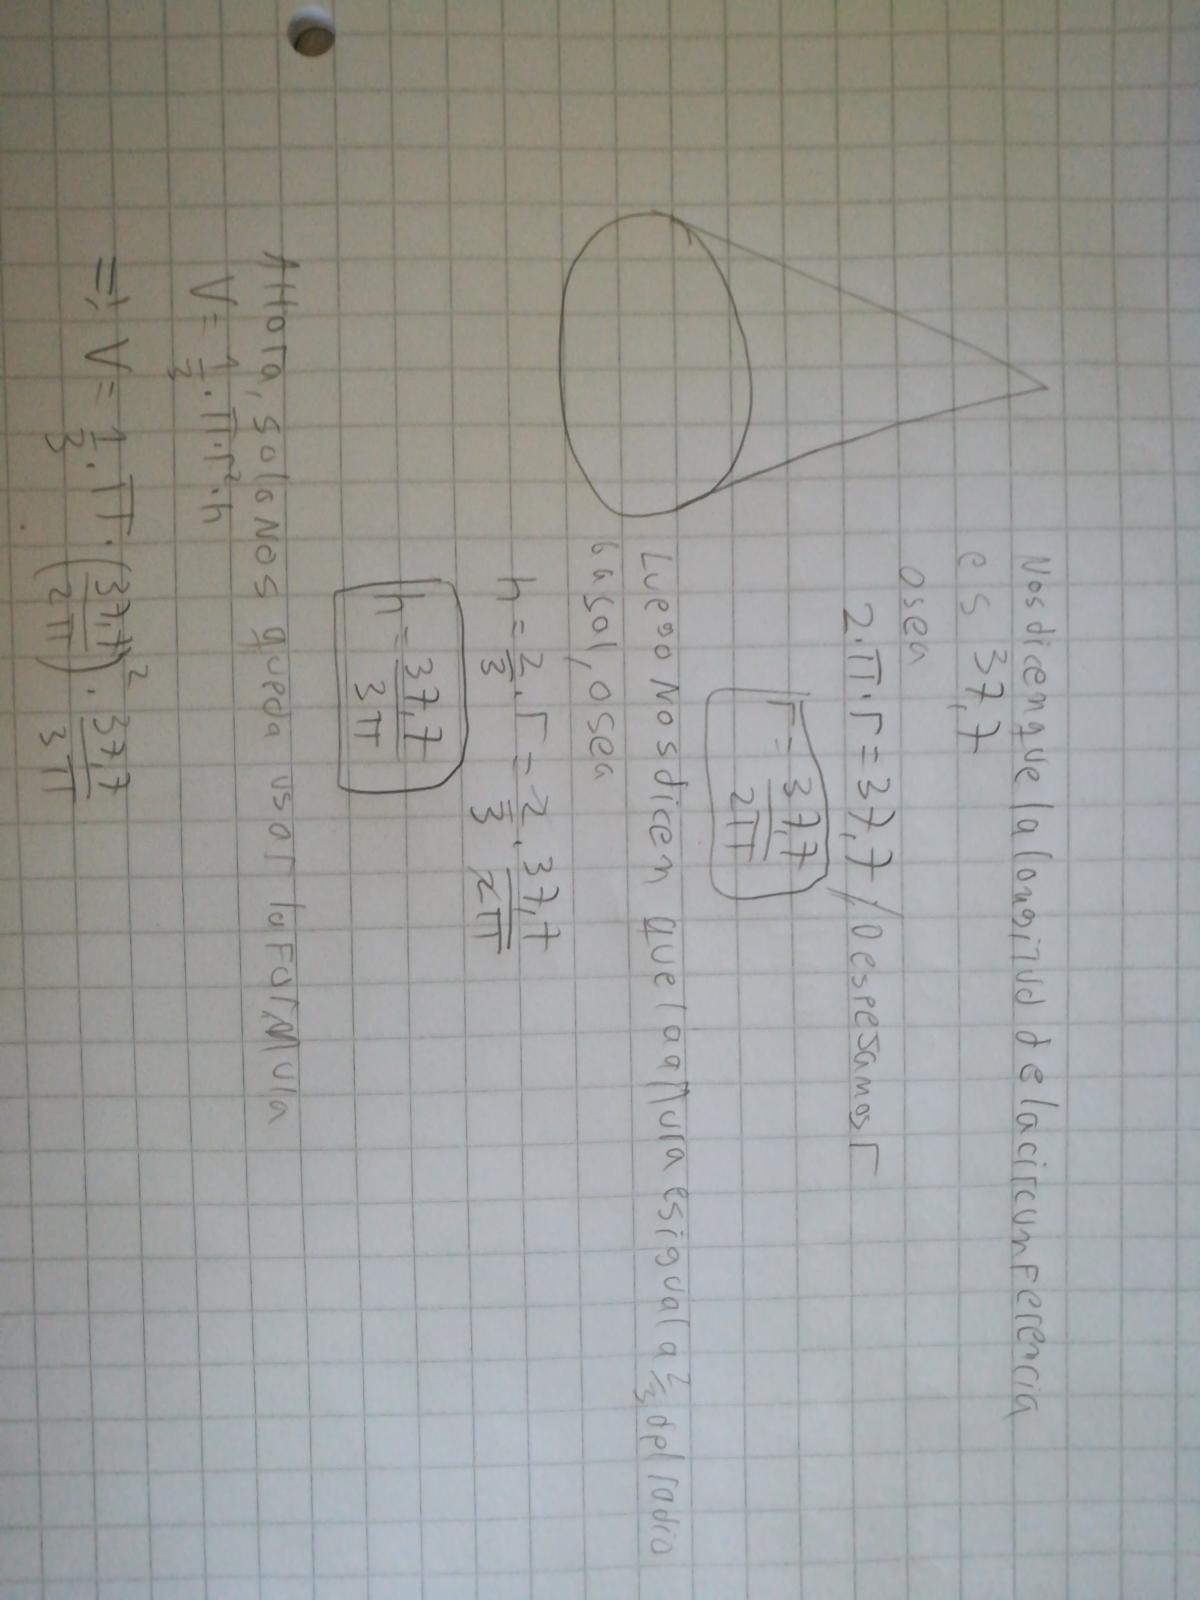 Nos dicen que la longitud de la circunferencia
es 37,7
osea
2·π·r = 37,7 / Despejamos r
r = 37,7/2π
Luego Nos dicen que la altura es igual a 2/3 del radio
basal, osea
h = 2/3 · r = 2/3 · 37,7/2π
h = 37,7/3π
AHora, solo Nos queda usar la FORMula
V = 1/3 · π · r² · h
⇒ V = 1/3 · π · (37,7/2π)² · 37,7/3π